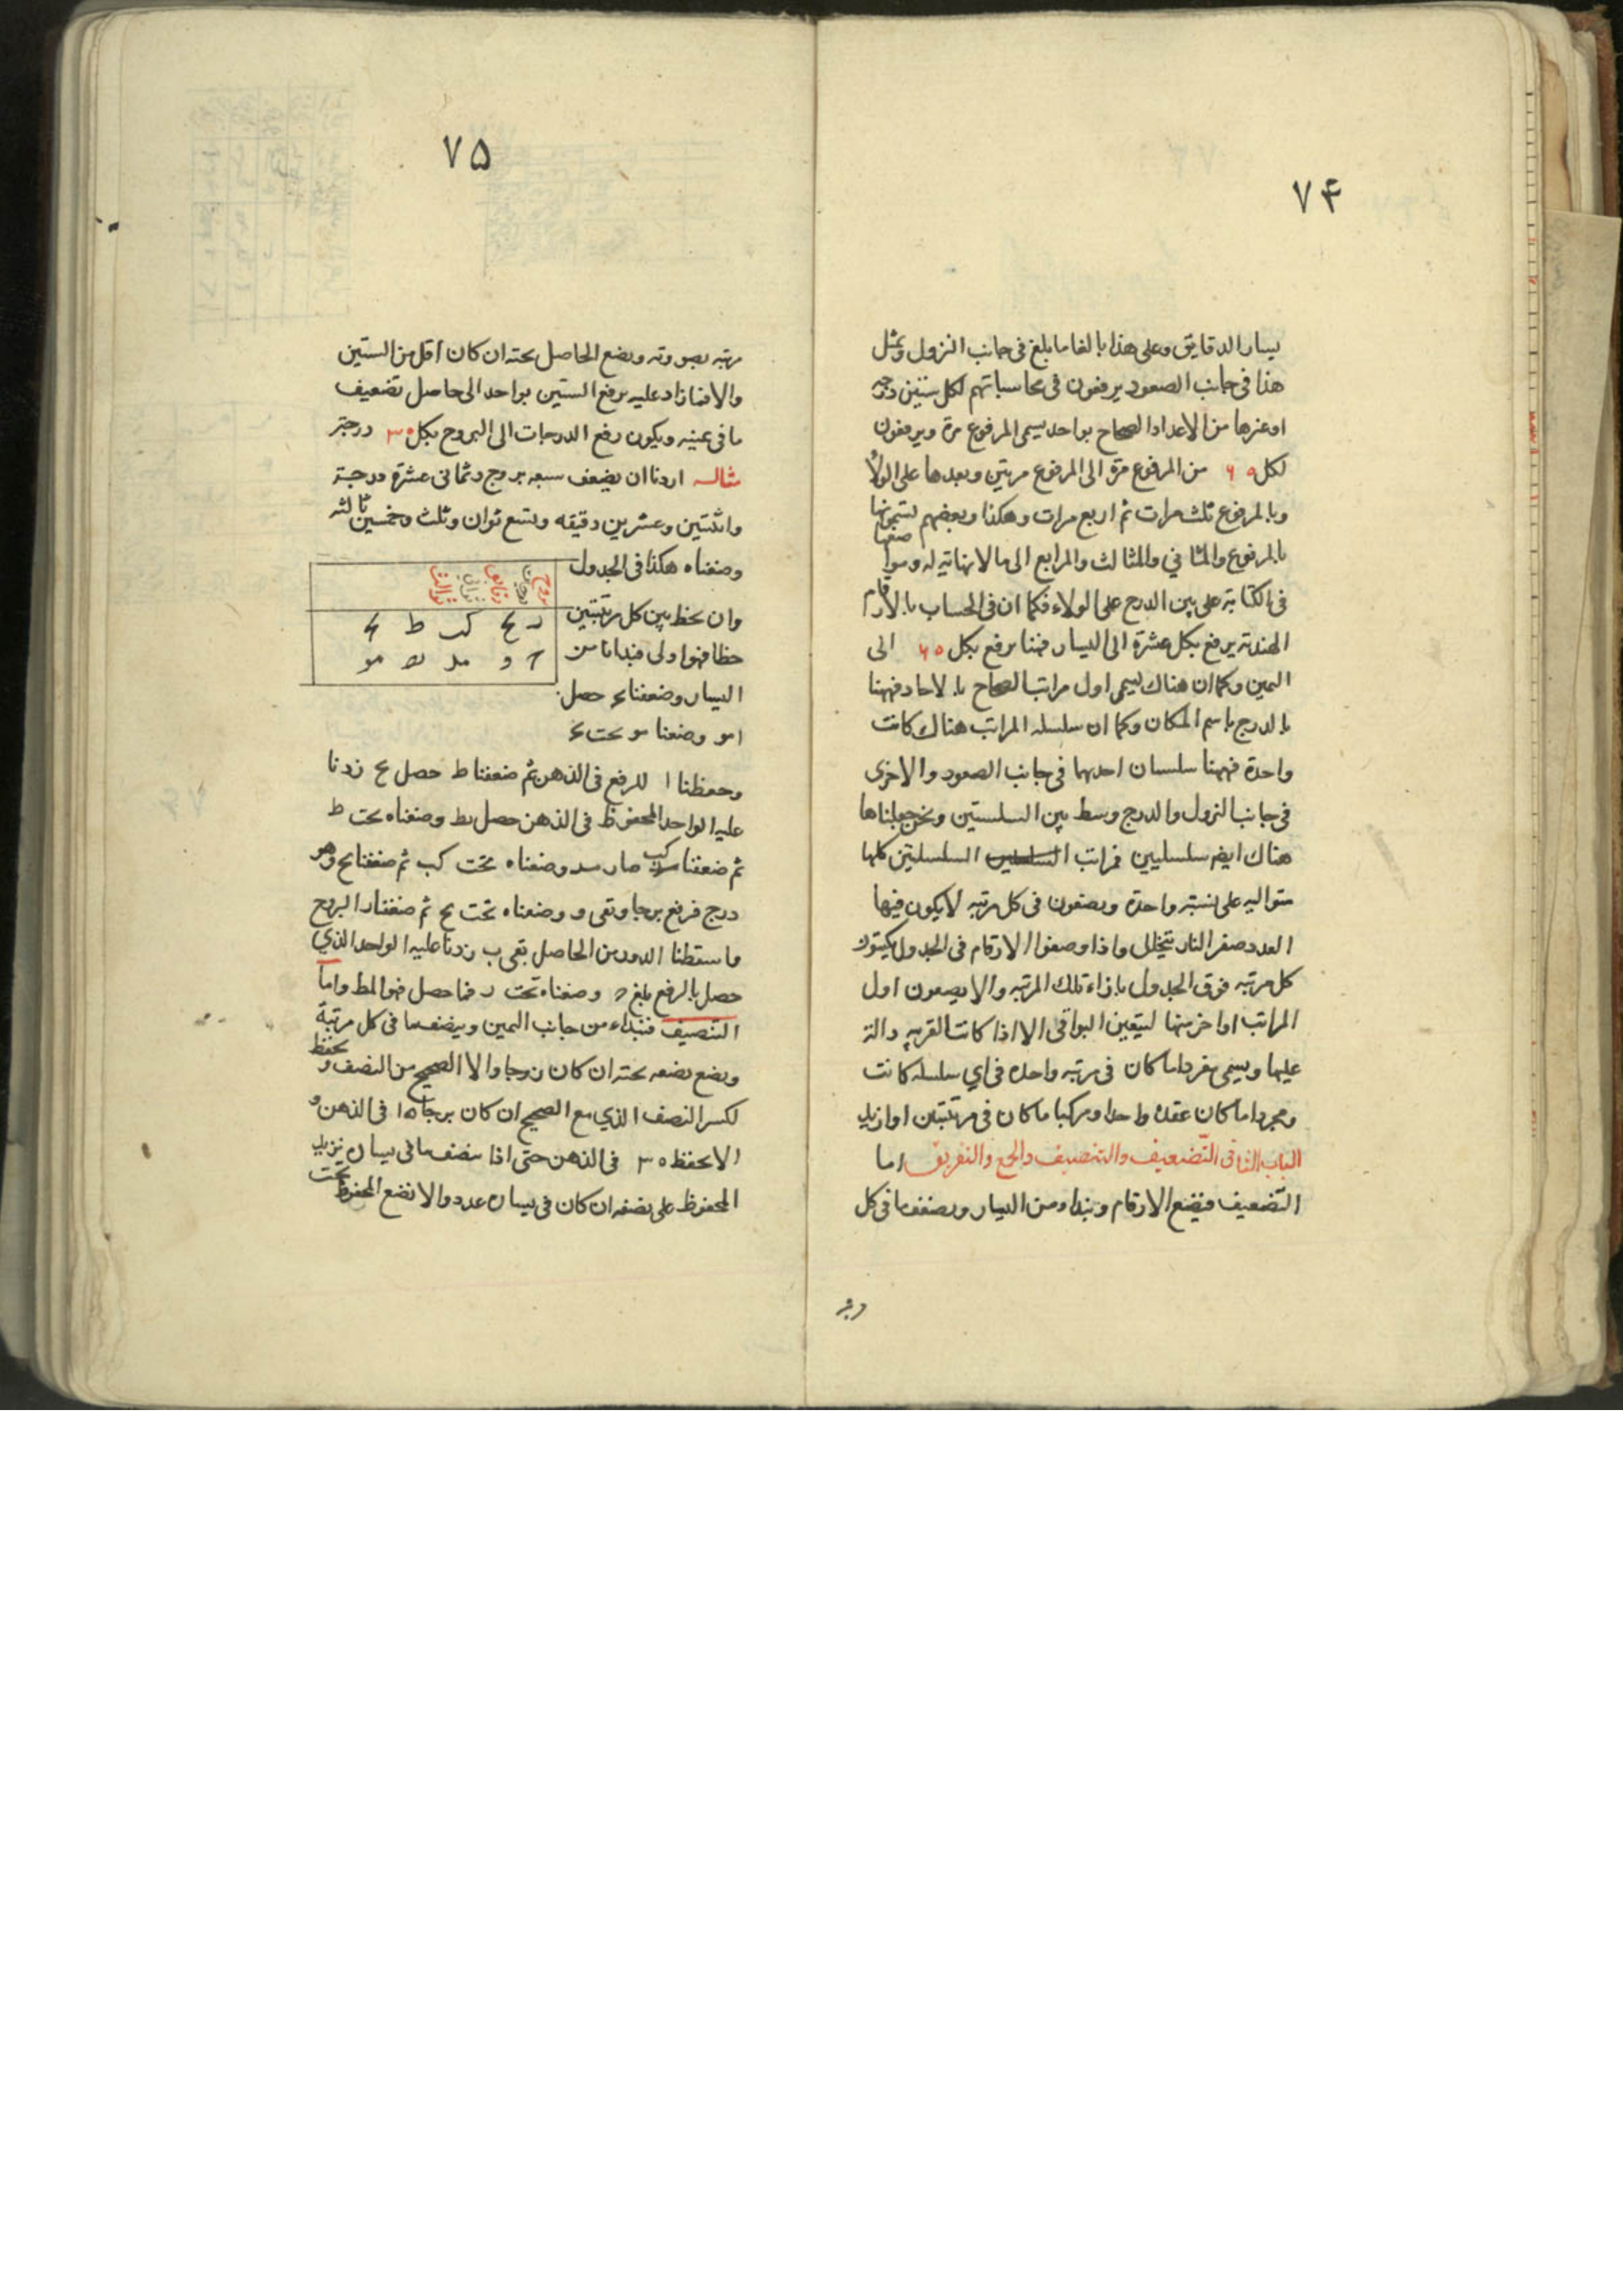 ٧۴
يسار الدقايق وعلى هذا بالغا ما بلغ فى جانب النزول وبمثل
هذا فى جانب الصعود يرفعون فى محاسباتهم لكل ستين درجه
او غيرها من الاعداد الصحاح بواحد يسمى المرفوع مرة ويرفعون
لكل ۶۰ من المرفوع مرة الى المرفوع مرتين وبعدها على الولاء
وبالمرفوع ثلث مرات ثم اربع مرات وهكذا وبعضهم يسمونها
بالمرفوع والمثانى والمثالث والمرابع الى ما لا نهاية له وسوا صفها
فى الكتابة على يمين الدرج على الولاء فكما ان فى الحساب بالارقام
الهندية يرفع بكل عشرة الى اليسار فهنا يرفع بكل ۶۰ الى
اليمين وكما ان هناك يسمى اول مراتب الصحاح بالاحاد فههنا
بالدرج باسم المكان وكما ان سلسله المراتب هناك كانت
واحدة فههنا سلسلتان احديهما فى جانب الصعود والاخرى
فى جانب النزول والدرج وسط بين السلستين ونحن جعلناها
هناك ايضا سلسليين فمراتب السلسلتين كلها
متواليه على نسبة واحدة ويضعون فى كل مرتبه لا يكون فيها
العدد صفر النار يتخلل واذا وضعوا الارقام فى الجدول يكتبون
كل مرتبه فوق الجدول بازاء تلك المرتبه والا يضعون اول
المراتب او اخر منها ليتعين البواقى الا اذا كانت القرينه دالة
عليها ويسمى مفردا ما كان فى مرتبه واحده فى اي سلسله كانت
ومجردا ما كان عقده واحدا ومركبا ما كان فى مرتبتين او ازيد
الباب الثانى فى التضعيف والتنصيف والجمع والتفريق اما
التضعيف فنضع الارقام ونبداء من اليسار ونضعف ما فى كل
٧۵
مرتبه بصورته ونضع الحاصل تحته ان كان اقل من الستين
والا فما زاد عليه يرفع الستين بواحد الى حاصل تضعيف
ما فى يمينه ويكون رفع الدرجات الى البروج بكل ۳۰ درجة
مثاله اردنا ان يضعف سبعه بروج وثمانى عشرة درجة
واثنتين وعشرين دقيقه وتسع ثوان وثلث وخمسين ثالثه
وضعناه هكذا فى الجدول
بروج درجات دقايق ثوانى ثوالث
ز يح كب ط نج
ج و مد يط مو
وان نخط بين كل مرتبتين
خطا فهو اولى فبدانا من
اليسار وضعفنا نج حصل
ا مو وضعنا مو تحت نج
وحفظنا ا للرفع فى الذهن ثم ضعفنا ط حصل يح زدنا
عليه الواحد المحفوظ فى الذهن حصل يط وضعناه تحت ط
ثم ضعفنا كب صار مد وضعناه تحت كب ثم ضعفنا يح وهو
درج فرفع برجا وبقى و وضعناه تحت يح ثم ضعفنا ز البروج
فاسقطنا الدور من الحاصل بقى ب زدنا عليه الواحد الذي
حصل بالرفع بلغ ج وضعناه تحت ز فما حصل فهو المط واما
التنصيف فنبداء من جانب اليمين وينصف ما فى كل مرتبة
ونضع نصفه تحته ان كان زوجا والا الصحيح من النصف ونحفظ
لكسر النصف الذي مع الصحيح ان كان برجا ۱۵ فى الذهن و
الا نحفظ ۳۰ فى الذهن حتى اذا نصف ما فى يساره نزيد
المحفوظ على نصفه ان كان فى يساره عدد والا نضع المحفوظ تحت